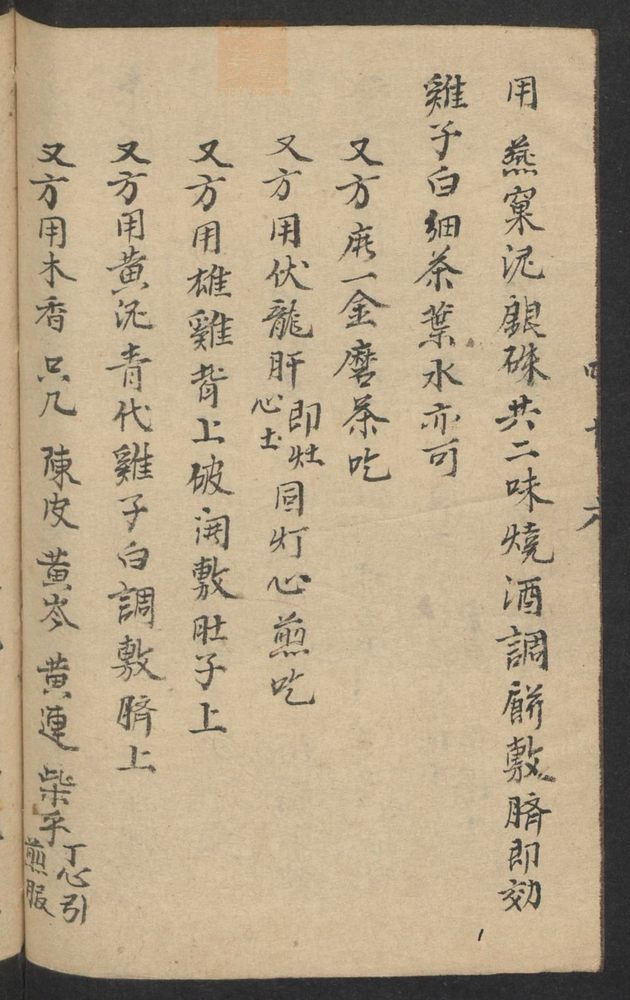 用燕窠泥銀硃共二味燒酒調餅敷臍即効
雞子白細茶葉水亦可
又方 一金磨茶吃
又方用伏龍肝即灶心土同灯心煎吃
又方用雄雞背上破開敷肚子上
又方用黃泥青代雞子白調敷臍上
又方用木香 只凡 陳皮 黃岑 黃連 柴乎 丁心引煎服